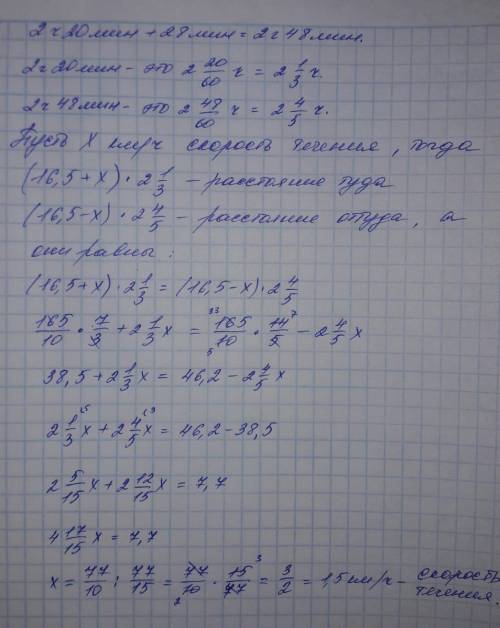 2ч20мин + 28мин = 2ч 48мин.
2ч 20мин - это 2 20/60 ч = 2 1/3 ч.
2ч 48мин - это 2 48/60 ч = 2 4/5 ч.
Пусть x км/ч скорость течения, тогда
(16,5+x)·2 1/3 - расстояние туда
(16,5-x)·2 4/5 - расстояние оттуда, а
они равны:
(16,5+x)·2 1/3 = (16,5-x)·2 4/5
165/10 · 7/3 + 2 1/3 x = 165/10 · 14/5 - 2 4/5 x
38,5 + 2 1/3 x = 46,2 - 2 4/5 x
2 1/3 x + 2 4/5 x = 46,2 - 38,5
2 5/15 x + 2 12/15 x = 7,7
4 17/15 x = 7,7
x = 77/10 : 77/15 = 77/10 · 15/77 = 3/2 = 1,5 км/ч - скорость
течения.